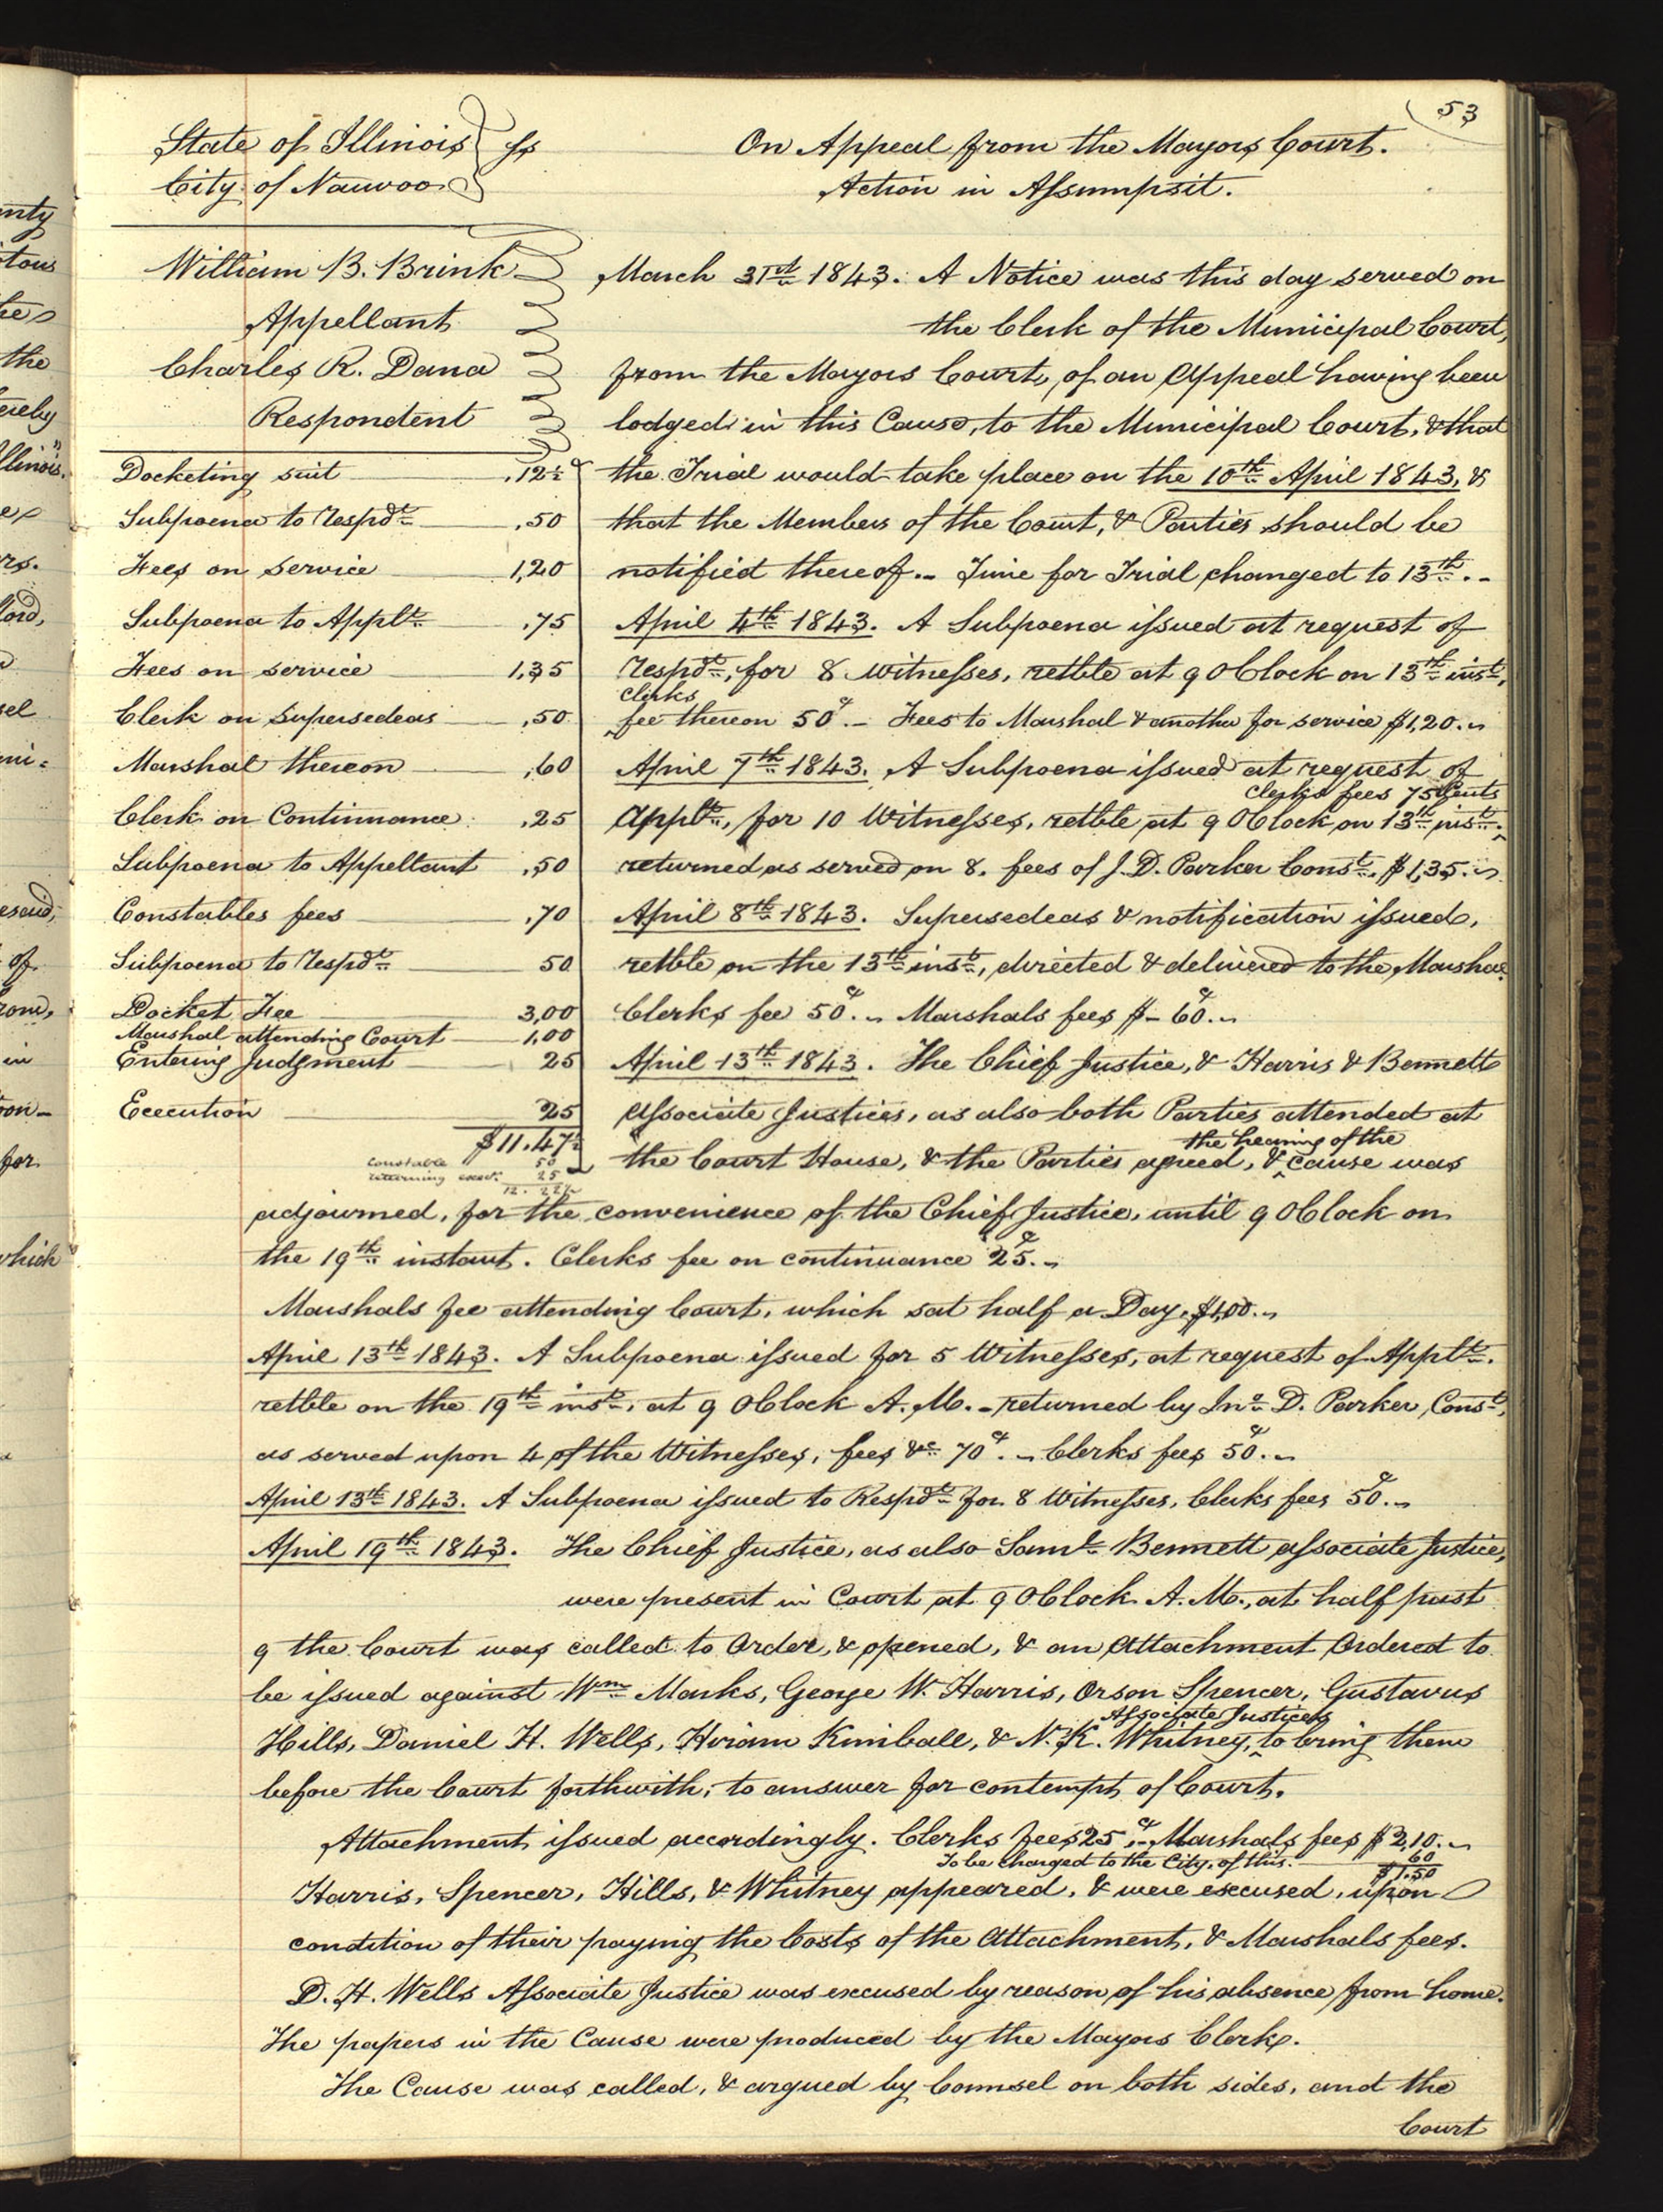 53
State of Illinois } ss
City of Nauvoo }
On Appeal from the Mayors Court.
Action in Assumpsit.
William B. Brink
Appellant
Charles R. Dana
Respondent
Docketing suit ,12½
Subpoena to Respdt. ,50
Fees on service 1,20
Subpoena to Applt. ,75
Fees on service 1,35
Clerk on Supersedeas ,50
Marshal thereon ,60
Clerk on Continuance ,25
Subpoena to Appellant ,50
Constables fees ,70
Subpoena to Respdt. 50
Docket Fee 3,00
Marshal attending Court 1,00
Entering Judgment 25
Execution 25
$11.47½
constable 50
returning exect. 25
12.22½
March 31st 1843. A Notice was this day served on
the Clerk of the Municipal Court,
from the Mayors Court, of an Appeal having been
lodged in this Cause, to the Municipal Court, & that
the Trial would take place on the 10th April 1843, &
that the Members of the Court, & Parties should be
notified thereof.- Time for Trial changed to 13th.-
April 4th 1843. A Subpoena issued at request of
Respdt., for 8 witnesses, retble at 9 OClock on 13th inst,
Clerks
fee thereon 50¢.- Fees to Marshal & another for service $1,20.~
April 7th 1843. A Subpoena issued at request of
Clerks fees 75 Cents
Applt., for 10 Witnesses, retble at 9 OClock on 13th inst.^
returned as served on 8. fees of J. D. Parker Const. $1,35.~
April 8th 1843. Supersedeas & notification issued,
retble on the 13th inst., directed & delivered to the Marshal.
Clerks fee 50¢.~ Marshals fees $- 60¢.~
April 13th 1843. The Chief Justice, & Harris & Bennett
Associate Justices, as also both Parties attended at
the hearing of the
the Court House, & the Parties agreed, & ^ cause was
adjourned, for the convenience of the Chief Justice, until 9 OClock on
the 19th instant. Clerks fee on continuance 25¢.~
Marshals fee attending Court, which sat half a Day, $1,00.~
April 13th 1843. A Subpoena issued for 5 Witnesses, at request of Applt.
retble on the 19th inst., at 9 OClock A.M.- returned by Jno. D. Parker, Const,
as served upon 4 of the Witnesses, fees &c. 70¢.~ Clerks fees 50¢.~
April 13th 1843. A Subpoena issued to Respdt. for 8 Witnesses, Clerks fees 50¢.~
April 19th 1843. The Chief Justice, as also Saml. Bennett associate Justice,
were present in Court at 9 OClock A.M., at half past
9 the Court was called to Order, & opened, & an Attachment Ordered to
be issued against Wm. Marks, George W. Harris, Orson Spencer, Gustavus
Associate Justices
Hills, Daniel H. Wells, Hiram Kimball, & N. K. Whitney, ^ to bring them
before the Court forthwith; to answer for contempt of Court.
Attachment issued accordingly. Clerks fees 25¢.- Marshals fees $2,10.~
To be charged to the City, of this. 60
$1.50
Harris, Spencer, Hills, & Whitney appeared, & were excused, upon
condition of their paying the Costs of the Attachment, & Marshals fees.
D. H. Wells Associate Justice was excused by reason of his absence from home.
The papers in the Cause were produced by the Mayors Clerk.
The Cause was called, & argued by Counsel on both sides, and the
Court